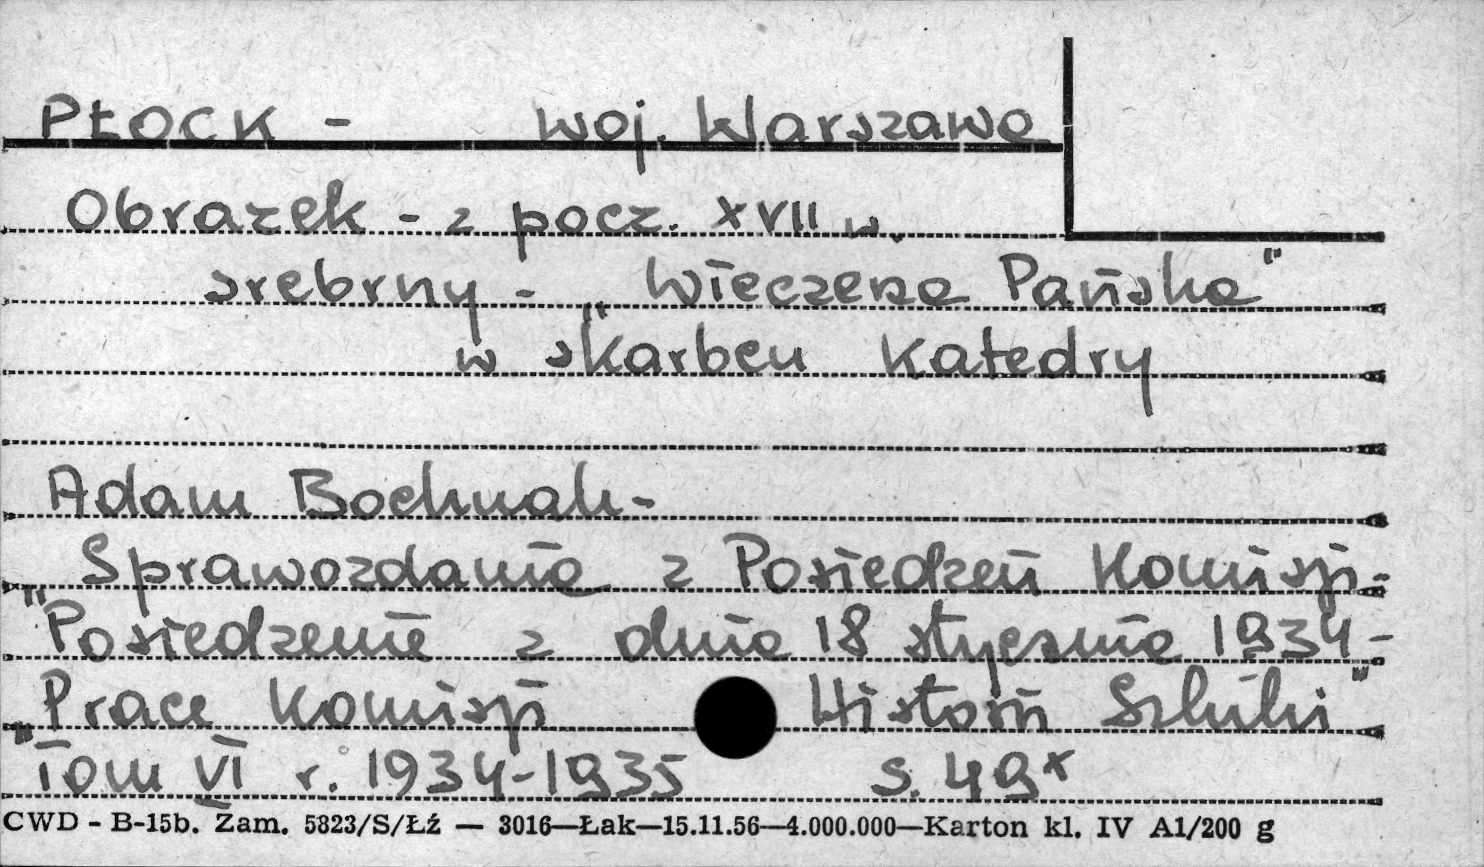 PŁOCK - woj. Warszawa
Obrazek - z pocz. XVII w.
srebrny - „Wieczerza Pańska"
w skarbcu Katedry
Adam Bochnak -
Sprawozdania z Posiedzeń Komisji -
"Posiedzenie z dnia 18 stycznia 1934 -
Prace Komisji Historii Sztuki"
"Tom VI r. 1934-1935 s. 49x
CWD - B-15b. Zam. 5823/S/Łź — 3016—Łak—15.11.56—4.000.000—Karton kl. IV A1/200 g